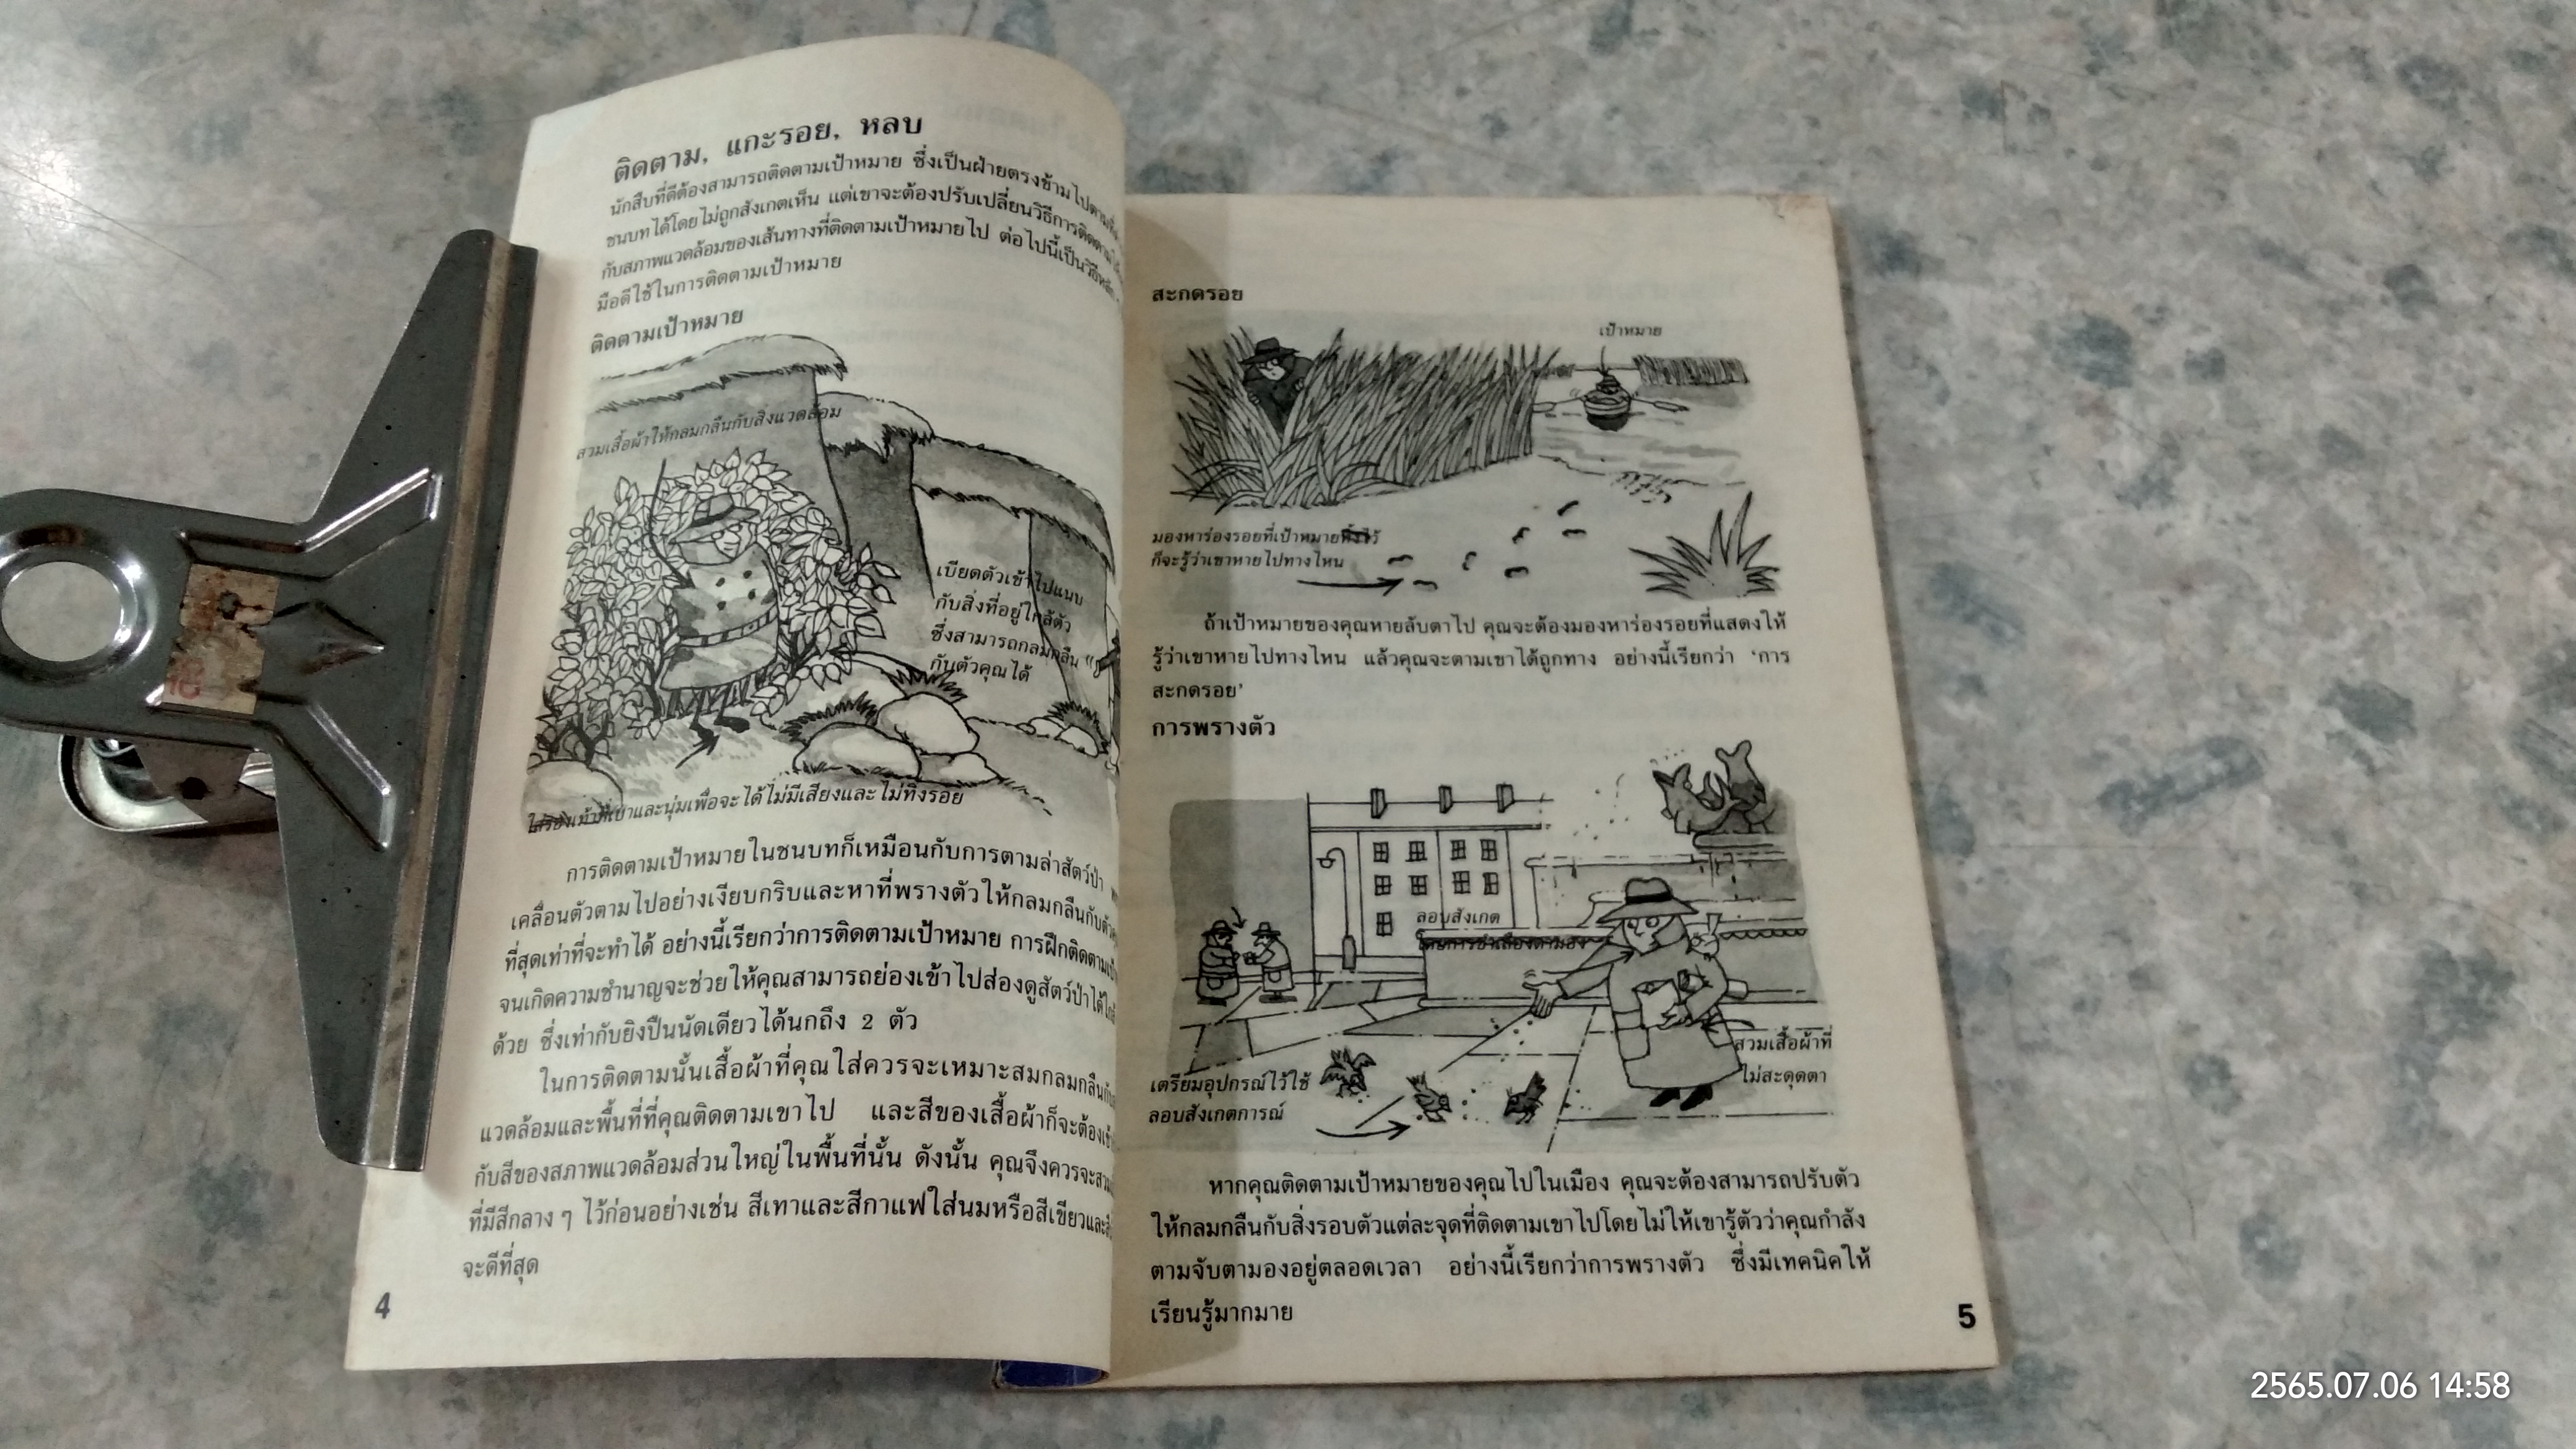 ติดตาม, แกะรอย, หลบ
นักสืบที่ดีต้องสามารถติดตามเป้าหมาย ซึ่งเป็นฝ่ายตรงข้ามไปตาม
ชนบทได้โดยไม่ถูกสังเกตเห็น แต่เขาจะต้องปรับเปลี่ยนวิธีการติดตาม
กับสภาพแวดล้อมของเส้นทางที่ติดตามเป้าหมายไป ต่อไปนี้เป็นวิธี
มือดีใช้ในการติดตามเป้าหมาย
ติดตามเป้าหมาย
สวมเสื้อผ้าให้กลมกลืนกับสิ่งแวดล้อม
เบียดตัวเข้าไปแนบ
กับสิ่งที่อยู่ใกล้ตัว
ซึ่งสามารถกลมกลืน
กับตัวคุณได้
ใส่รองเท้าที่เบาและนุ่มเพื่อจะได้ไม่มีเสียงและไม่ทิ้งรอย
การติดตามเป้าหมายในชนบทก็เหมือนกับการตามล่าสัตว์ป่า
เคลื่อนตัวตามไปอย่างเงียบกริบและหาที่พรางตัวให้กลมกลืนกับ
ที่สุดเท่าที่จะทำได้ อย่างนี้เรียกว่าการติดตามเป้าหมาย การฝึกติดตาม
จนเกิดความชำนาญจะช่วยให้คุณสามารถย่องเข้าไปส่องดูสัตว์ป่าได้
ด้วย ซึ่งเท่ากับยิงปืนนัดเดียวได้นกถึง 2 ตัว
ในการติดตามนั้นเสื้อผ้าที่คุณใส่ควรจะเหมาะสมกลมกลืน
แวดล้อมและพื้นที่ที่คุณติดตามเขาไป และสีของเสื้อผ้าก็จะต้อง
กับสีของสภาพแวดล้อมส่วนใหญ่ในพื้นที่นั้น ดังนั้น คุณจึงควรจะ
ที่มีสีกลาง ๆ ไว้ก่อนอย่างเช่น สีเทาและสีกาแฟใส่นมหรือสีเขียวและ
จะดีที่สุด
4
สะกดรอย
เป้าหมาย
มองหาร่องรอยที่เป้าหมายทิ้งไว้
ก็จะรู้ว่าเขาหายไปทางไหน
ถ้าเป้าหมายของคุณหายลับตาไป คุณจะต้องมองหาร่องรอยที่แสดงให้
รู้ว่าเขาหายไปทางไหน แล้วคุณจะตามเขาได้ถูกทาง อย่างนี้เรียกว่า ‘การ
สะกดรอย’
การพรางตัว
ลอบสังเกต
โดยการชำเลืองตามอง
สวมเสื้อผ้าที่
ไม่สะดุดตา
เตรียมอุปกรณ์ไว้ใช้
ลอบสังเกตการณ์
หากคุณติดตามเป้าหมายของคุณไปในเมือง คุณจะต้องสามารถปรับตัว
ให้กลมกลืนกับสิ่งรอบตัวแต่ละจุดที่ติดตามเขาไปโดยไม่ให้เขารู้ตัวว่าคุณกำลัง
ตามจับตามองอยู่ตลอดเวลา อย่างนี้เรียกว่าการพรางตัว ซึ่งมีเทคนิคให้
เรียนรู้มากมาย
5
2565.07.06 14:58